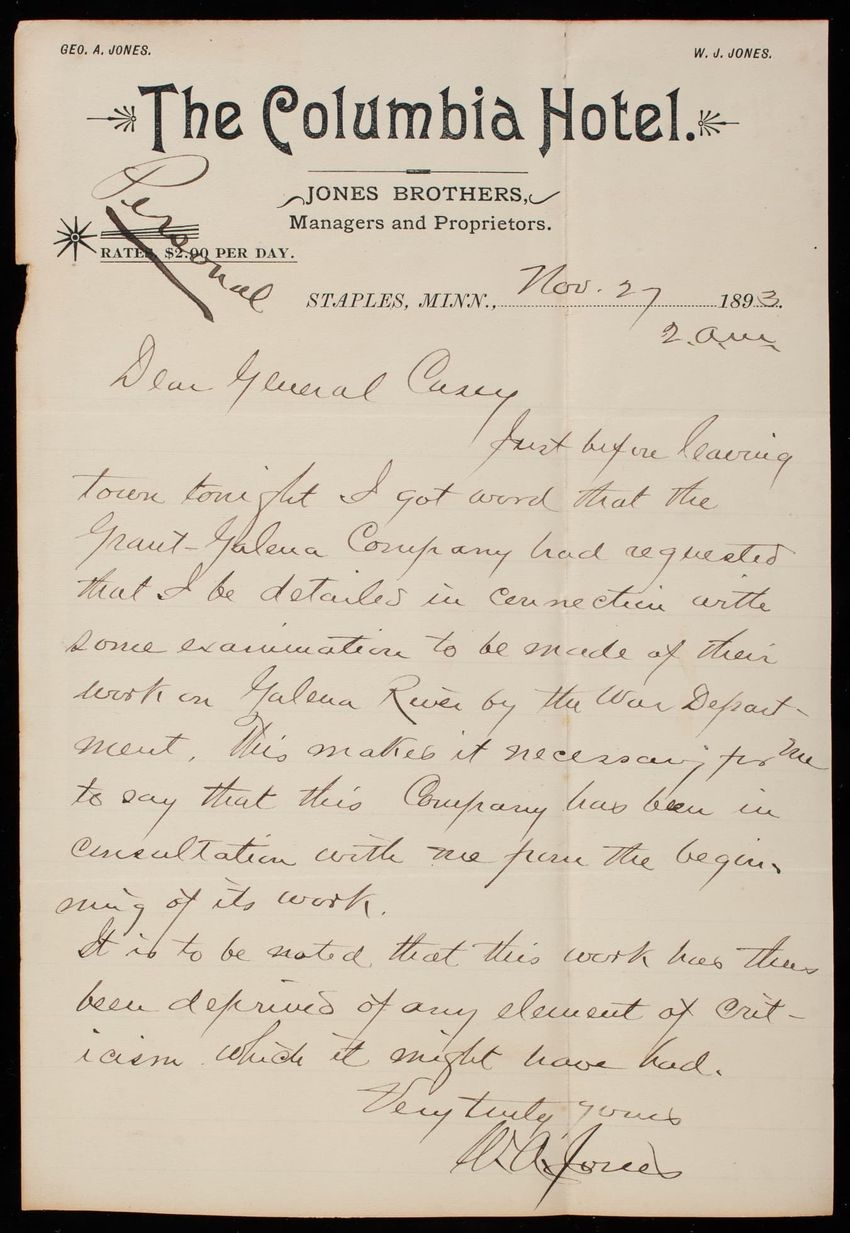 GEO. A. JONES.
W. J. JONES.
The Columbia Hotel.
JONES BROTHERS,
Managers and Proprietors.
Personal
RATES, $2.00 PER DAY.
STAPLES, MINN., Nov. 27 1893.
2. a.m.
Dear General Casey
Just before leaving
town tonight I got word that the
Grant-Galena Company had requested
that I be detailed in connection with
some examination to be made of their
work on Galena River by the War Depart-
ment. This makes it necessary for me
to say that this Company has been in
consultation with me from the begin-
ning of its work.
It is to be noted that this work has thus
been deprived of any element of crit-
icism which it might have had.
Very truly yours
W. A. Jones